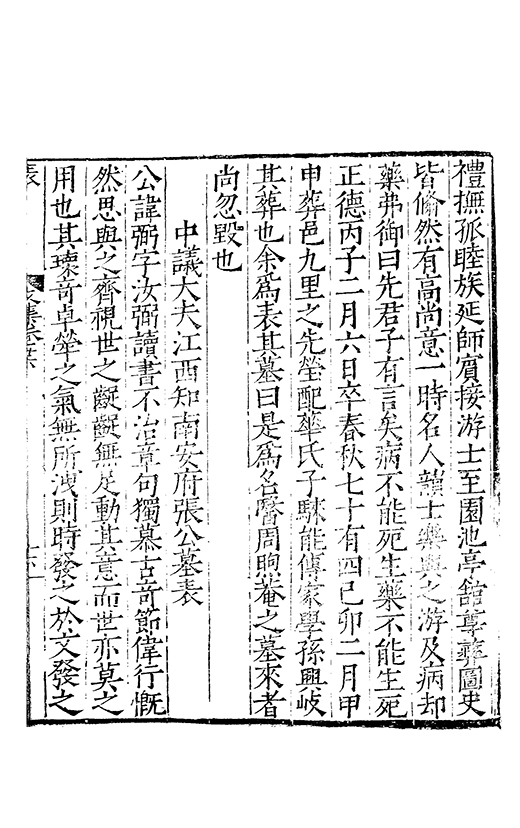 禮撫孤睦族延師賓接游士至園池亭舘尊彝圖史
皆翛然有高尚意一時名人韻士樂與之游及病却
藥弗御曰先君子有言矣病不能死生藥不能生死
正德丙子二月六日卒春秋七十有四己卯二月甲
申葬邑九里之先塋配華氏子騋能傳家學孫興岐
其葬也余爲表其墓曰是爲名醫周昫菴之墓來者
尚忽毀也
中議大夫江西知南安府張公墓表
公諱弼字汝弼讀書不治章句獨慕古奇節偉行慨
然思與之齊視世之齪齪無足動其意而世亦莫之
用也其瓌奇卓犖之氣無所洩則時發之於文發之